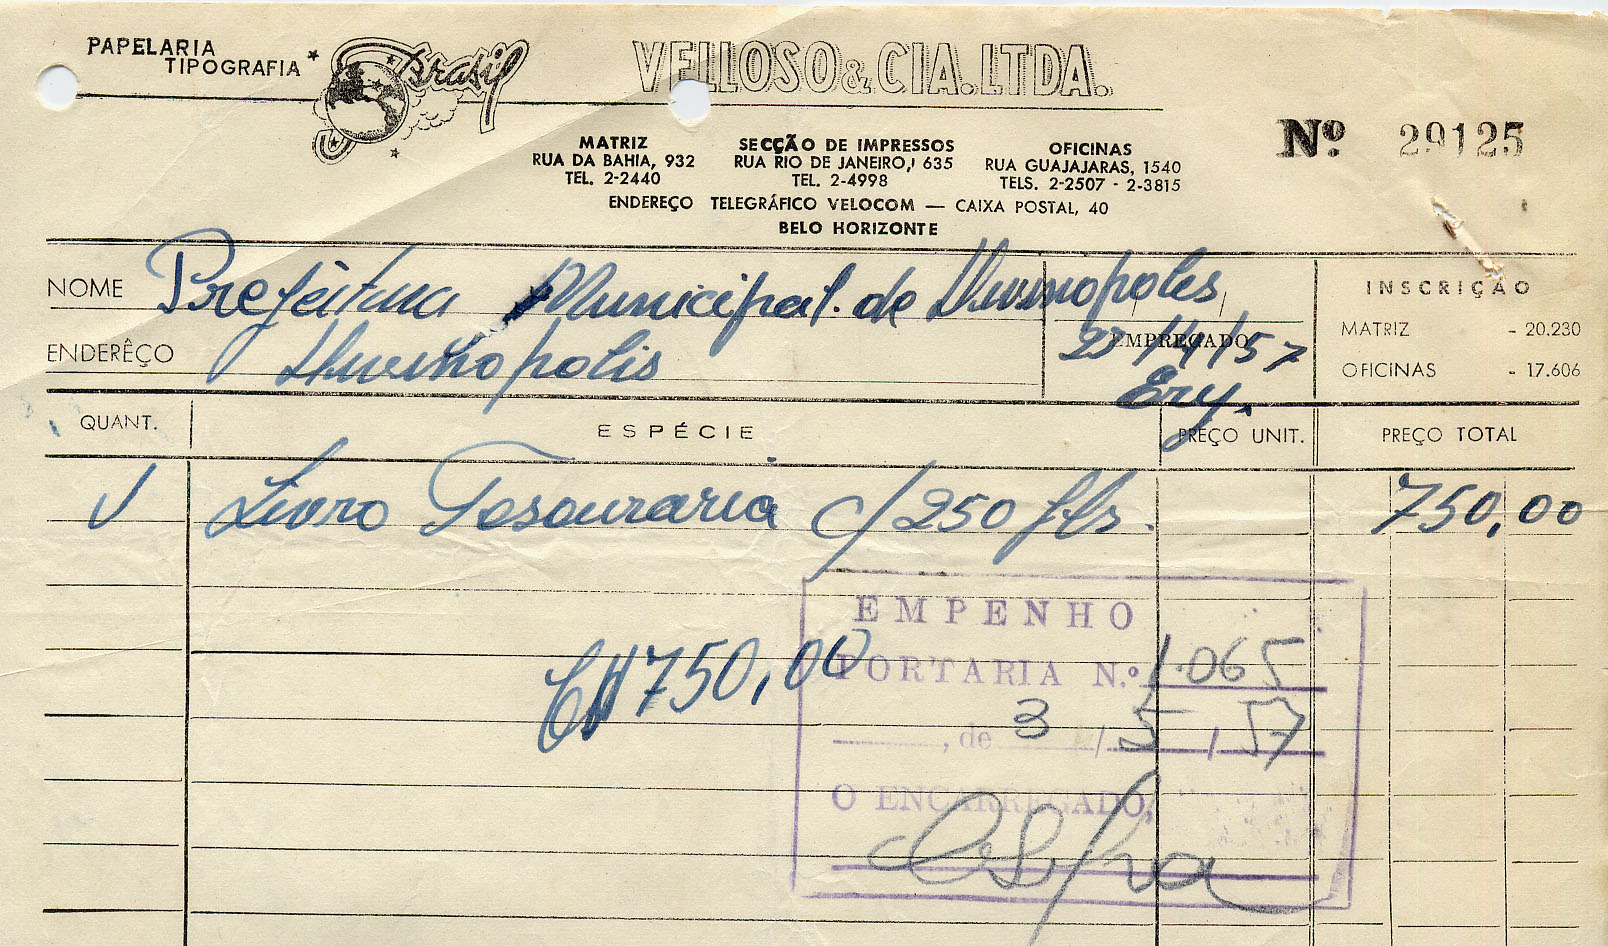 PAPELARIA
TIPOGRAFIA
Brasil
VELLOSO & CIA. LTDA.
Nº 29125
MATRIZ
RUA DA BAHIA, 932
TEL. 2-2440
SECÇÃO DE IMPRESSOS
RUA RIO DE JANEIRO, 635
TEL. 2-4998
OFICINAS
RUA GUAJAJARAS, 1540
TELS. 2-2507 - 2-3815
ENDEREÇO TELEGRÁFICO VELOCOM — CAIXA POSTAL, 40
BELO HORIZONTE
NOME Prefeitura Municipal de
ENDERÊÇO
EMPREGADO
/4/57
Ery.
INSCRIÇÃO
MATRIZ - 20.230
OFICINAS - 17.606
QUANT. ESPÉCIE PREÇO UNIT. PREÇO TOTAL
1 Livro Tesouraria c/250 fls. 750,00
Cr$ 750,00
EMPENHO
PORTARIA N.º 1.065
, de 3 / 5 / 57
O ENCARREGADO,